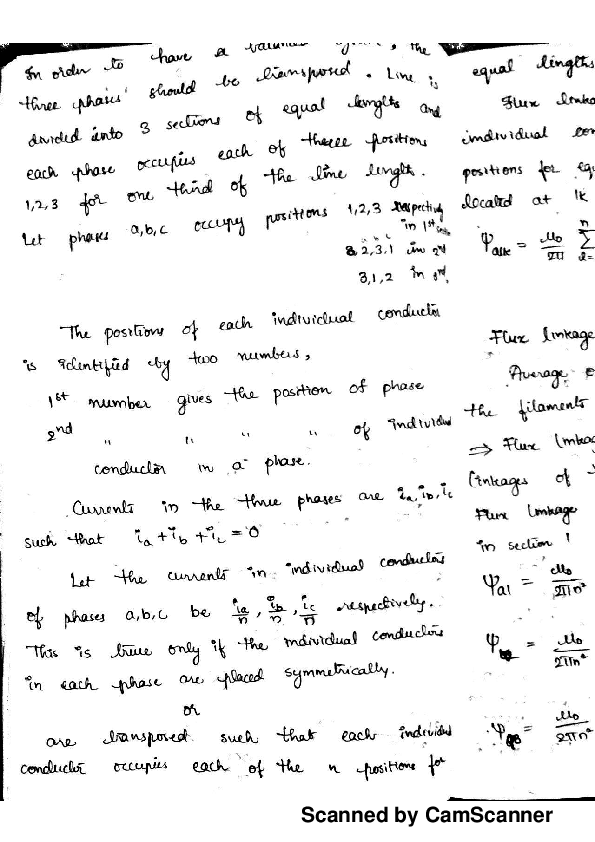 In order to have a the
three phases should be transposed. Line is
divided into 3 sections of equal lengths and
each phase occupies each of these positions
1,2,3 for one third of the line length.
Let phases a,b,c occupy positions 1,2,3 respectively
in 1st
2,3,1 in 2nd
3,1,2 in 3rd,
The positions of each individual conductor
is identified by two numbers,
1st number gives the position of phase
2nd " " " " of individu
conductor in a phase.
Currents in the three phases are ia, ib, ic
such that ia + ib + ic = 0
Let the currents in individual conductors
of phases a,b,c be ia/n, ib/n, ic/n respectively.
This is true only if the individual conductors
in each phase are placed symmetrically.
or
are transposed such that each individ
conductor occupies each of the n positions for
equal lengths
Flux linka
individual con
positions for equ
located at 1K
Ψa1k = μo/2π n∑
Flux linkage
Average o
the filaments
⇒ Flux linkag
linkages of
Flux linkage
in section 1
Ψa1 = μo/2πn²
Ψ = μo/2πn²
Ψ = μo/2πn²
Scanned by CamScanner